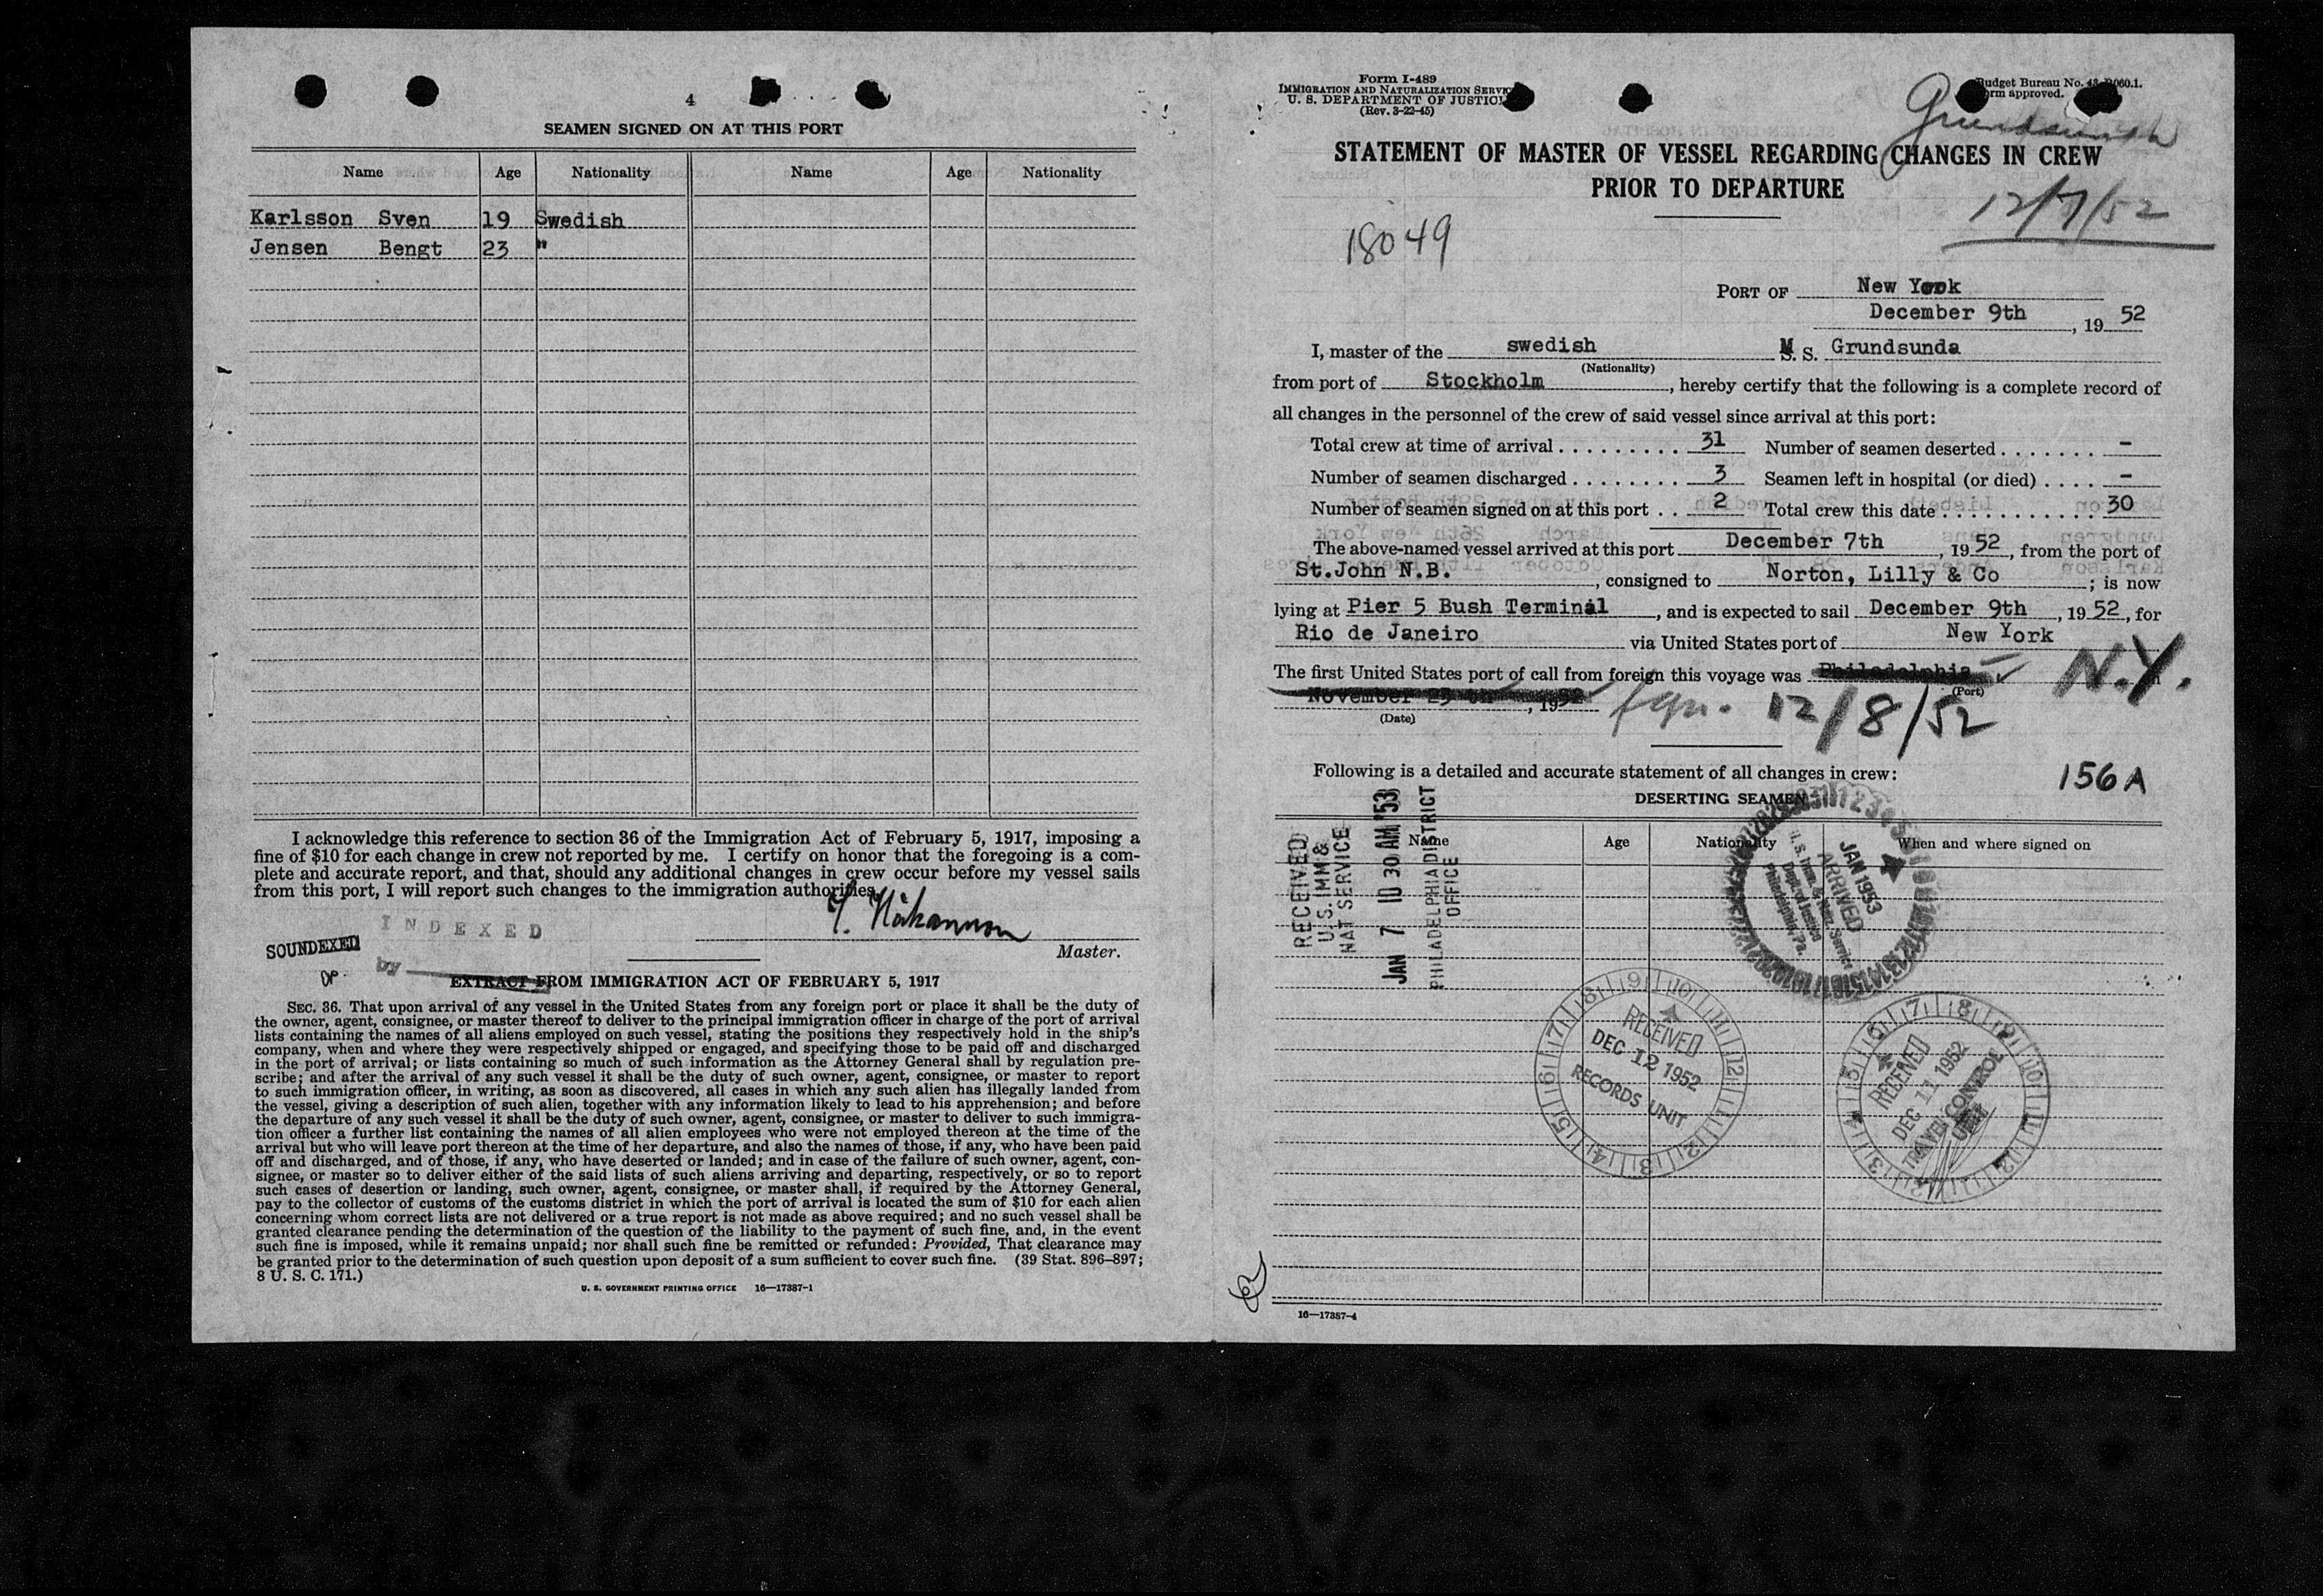 4
SEAMEN SIGNED ON AT THIS PORT
Name Age Nationality Name Age Nationality
Karlsson Sven 19 Swedish
Jensen Bengt 23 "
I acknowledge this reference to section 36 of the Immigration Act of February 5, 1917, imposing a
fine of $10 for each change in crew not reported by me. I certify on honor that the foregoing is a com-
plete and accurate report, and that, should any additional changes in crew occur before my vessel sails
from this port, I will report such changes to the immigration authorities.
INDEXED
SOUNDEXED
Master.
by
EXTRACT FROM IMMIGRATION ACT OF FEBRUARY 5, 1917
SEC. 36. That upon arrival of any vessel in the United States from any foreign port or place it shall be the duty of
the owner, agent, consignee, or master thereof to deliver to the principal immigration officer in charge of the port of arrival
lists containing the names of all aliens employed on such vessel, stating the positions they respectively hold in the ship's
company, when and where they were respectively shipped or engaged, and specifying those to be paid off and discharged
in the port of arrival; or lists containing so much of such information as the Attorney General shall by regulation pre-
scribe; and after the arrival of any such vessel it shall be the duty of such owner, agent, consignee, or master to report
to such immigration officer, in writing, as soon as discovered, all cases in which any such alien has illegally landed from
the vessel, giving a description of such alien, together with any information likely to lead to his apprehension; and before
the departure of any such vessel it shall be the duty of such owner, agent, consignee, or master to deliver to such immigra-
tion officer a further list containing the names of all alien employees who were not employed thereon at the time of the
arrival but who will leave port thereon at the time of her departure, and also the names of those, if any, who have been paid
off and discharged, and of those, if any, who have deserted or landed; and in case of the failure of such owner, agent, con-
signee, or master so to deliver either of the said lists of such aliens arriving and departing, respectively, or so to report
such cases of desertion or landing, such owner, agent, consignee, or master shall, if required by the Attorney General,
pay to the collector of customs of the customs district in which the port of arrival is located the sum of $10 for each alien
concerning whom correct lists are not delivered or a true report is not made as above required; and no such vessel shall be
granted clearance pending the determination of the question of the liability to the payment of such fine, and, in the event
such fine is imposed, while it remains unpaid; nor shall such fine be remitted or refunded: Provided, That clearance may
be granted prior to the determination of such question upon deposit of a sum sufficient to cover such fine. (39 Stat. 896–897;
8 U. S. C. 171.)
U. S. GOVERNMENT PRINTING OFFICE 16—17387-1
Form I-489
IMMIGRATION AND NATURALIZATION SERVICE
U. S. DEPARTMENT OF JUSTICE
(Rev. 3-22-45)
Budget Bureau No.
Form approved.
Grundsunda
STATEMENT OF MASTER OF VESSEL REGARDING CHANGES IN CREW
PRIOR TO DEPARTURE
12/7/52
18049
PORT OF New York
December 9th, 19 52
I, master of the swedish M. S. Grundsunda
(Nationality)
from port of Stockholm, hereby certify that the following is a complete record of
all changes in the personnel of the crew of said vessel since arrival at this port:
Total crew at time of arrival 31 Number of seamen deserted -
Number of seamen discharged 3 Seamen left in hospital (or died) -
Number of seamen signed on at this port 2 Total crew this date 30
The above-named vessel arrived at this port December 7th, 19 52, from the port of
St.John N.B., consigned to Norton, Lilly & Co; is now
lying at Pier 5 Bush Terminal, and is expected to sail December 9th, 19 52, for
Rio de Janeiro via United States port of New York
The first United States port of call from foreign this voyage was Philadelphia N.Y.
(Port)
November 25 th, 1952 12/8/52
(Date)
Following is a detailed and accurate statement of all changes in crew:
156 A
DESERTING SEAMEN
Name Age Nationality When and where signed on
RECEIVED
U.S. IMM &
NAT SERVICE
JAN 7 10 30 AM '53
PHILADELPHIA DISTRICT
OFFICE
JAN 1953
ARRIVED
U. S. Imm. & Naz. Service
Dept. of Justice
Philadelphia, Pa.
RECEIVED
DEC 12 1952
RECORDS UNIT
RECEIVED
DEC 11 1952
TRAVEL CONTROL
UNIT
16—17387-4